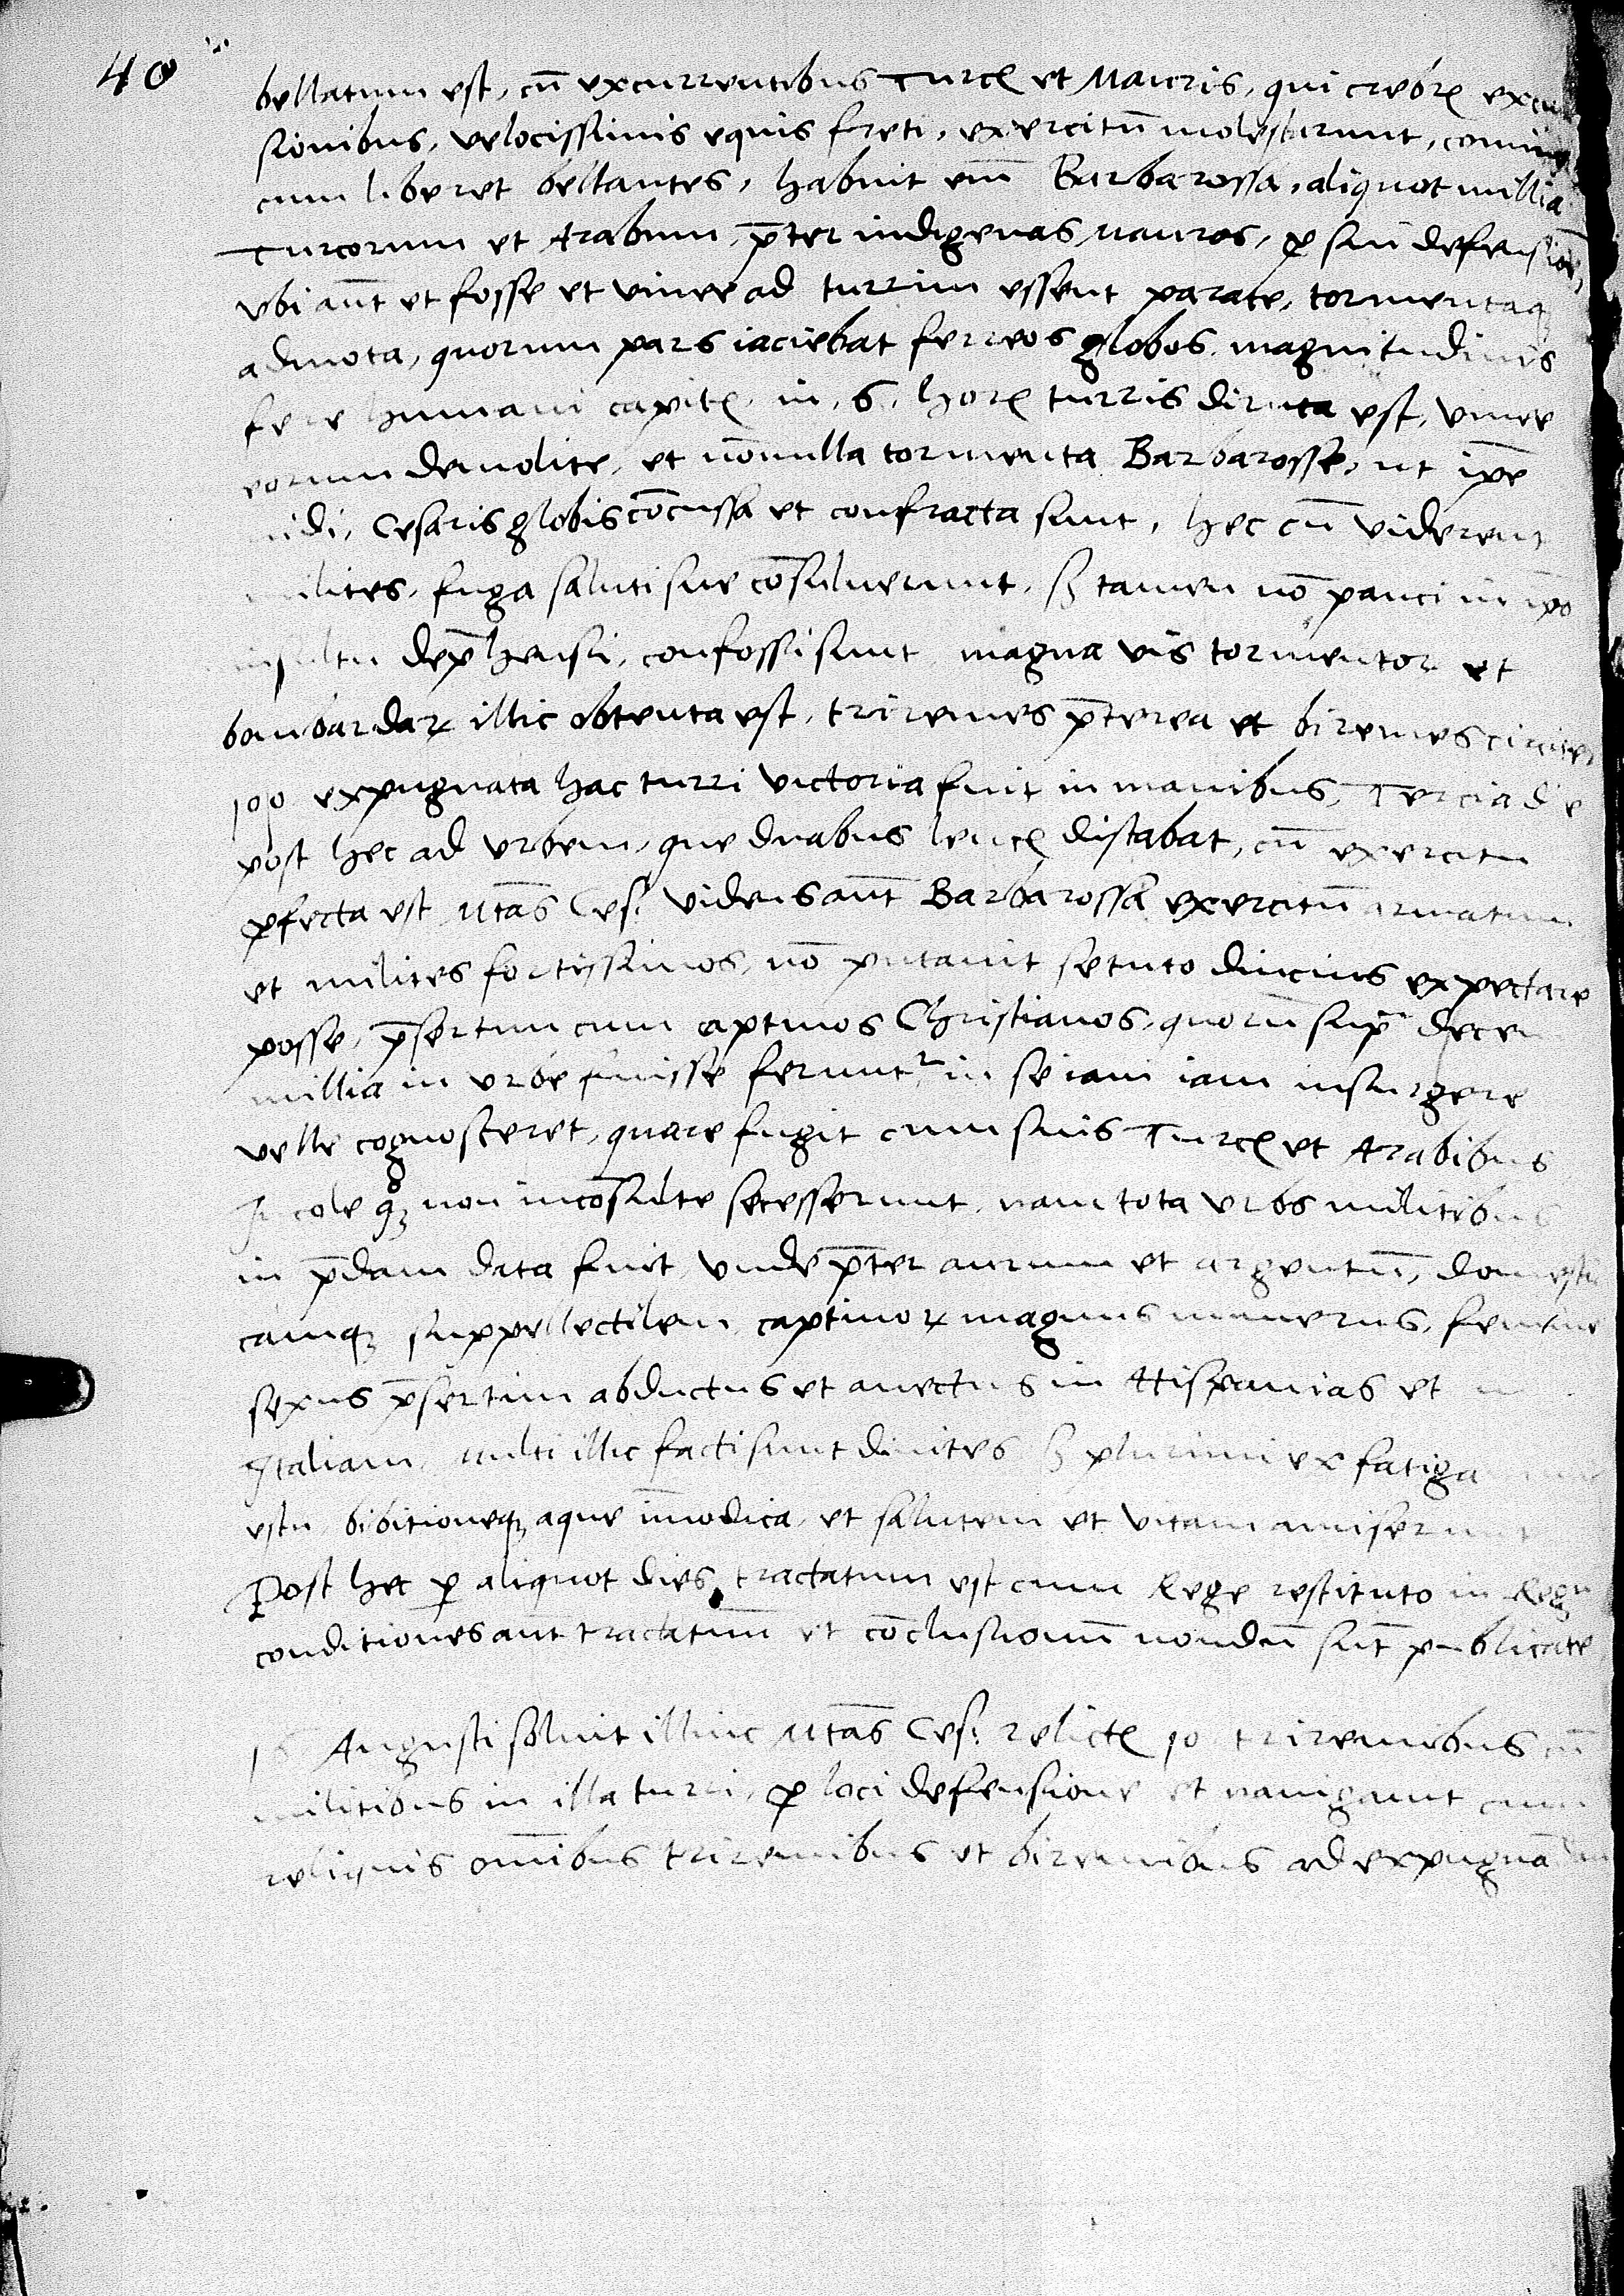 40
bellatum est, cū excurrentibus Turcꝭ et Mauris, qui crebrꝭ excur
sionibus, velocissimis equis freti, exercitū molestarunt, cominus
cum liberet bellantes, habuit em̄ Barbarossa, aliquot millia
Turcorum et Arabum, p̄ter indigenas mauros, ꝓ sui defensiōe,
vbi aūt et fosse et vinee ad turrim essent parate, tormentaqꝫ
admota, quorum pars iaciebat ferreos globos magnitudinis
fere humani capitꝭ, in .6. horꝭ turris diruta est, vinee
eorum demolite, et nōnulla tormenta Barbarosse, ut ip̄e
uidi, Cesaris globis cōcussa et confracta sunt, hec cū viderent
milites, fuga saluti sue cōsuluerunt, sꝫ tamen nō pauci in ip̄o
insultu dep̄hensi, confossi sunt magna vis tormentor et
bombardaꝝ illic obtenta est, triremes p̄terea et biremes circiter
100 expugnata hac turri victoria fuit in manibus, Tercia die
post hec ad vrbem, que duabus leucꝭ distabat, cū exercitu
ꝓfecta est Mtas Ces: videns aūt Barbarossa exercitū armatum
et milites fortissimos, nō putauit se tuto diucius expectare
posse, p̄sertim cum captiuos Christianos, quorū sup̄ decem
millia in vrbe fuisse feruntr in se iam iam insurgere
velle cognosceret, quare fugit cum suis Turcꝭ et Arabibus
Incole qꝫ non incōsulte secesserunt, nam tota vrbs militibus
in p̄dam data fuit, vnde p̄ter aurum et argentū, domesti
camqꝫ suppellectilem, captiuoꝝ magnus numerus, feminei
sexus p̄sertim abductus et auectus in Hispanias et
Italiam, multi illic facti sunt diuites sꝫ plurimi ex fatiga
estu, bibitioneqꝫ aque im̄odica, et salutem et vitam amiserunt
Post hec ꝑ aliquot dies tractatum est cum Rege restituto in Regn
conditiones aūt tractatuum et cōclusionum nondū sūt publicate
16 Augusti soluit illinc Mtas Ces: relictꝭ 10 triremibus cū
militibus in illa turri, ꝓ loci defensione et nauigauit cum
reliquis om̄ibus triremibus et biremibus ad expugnādam